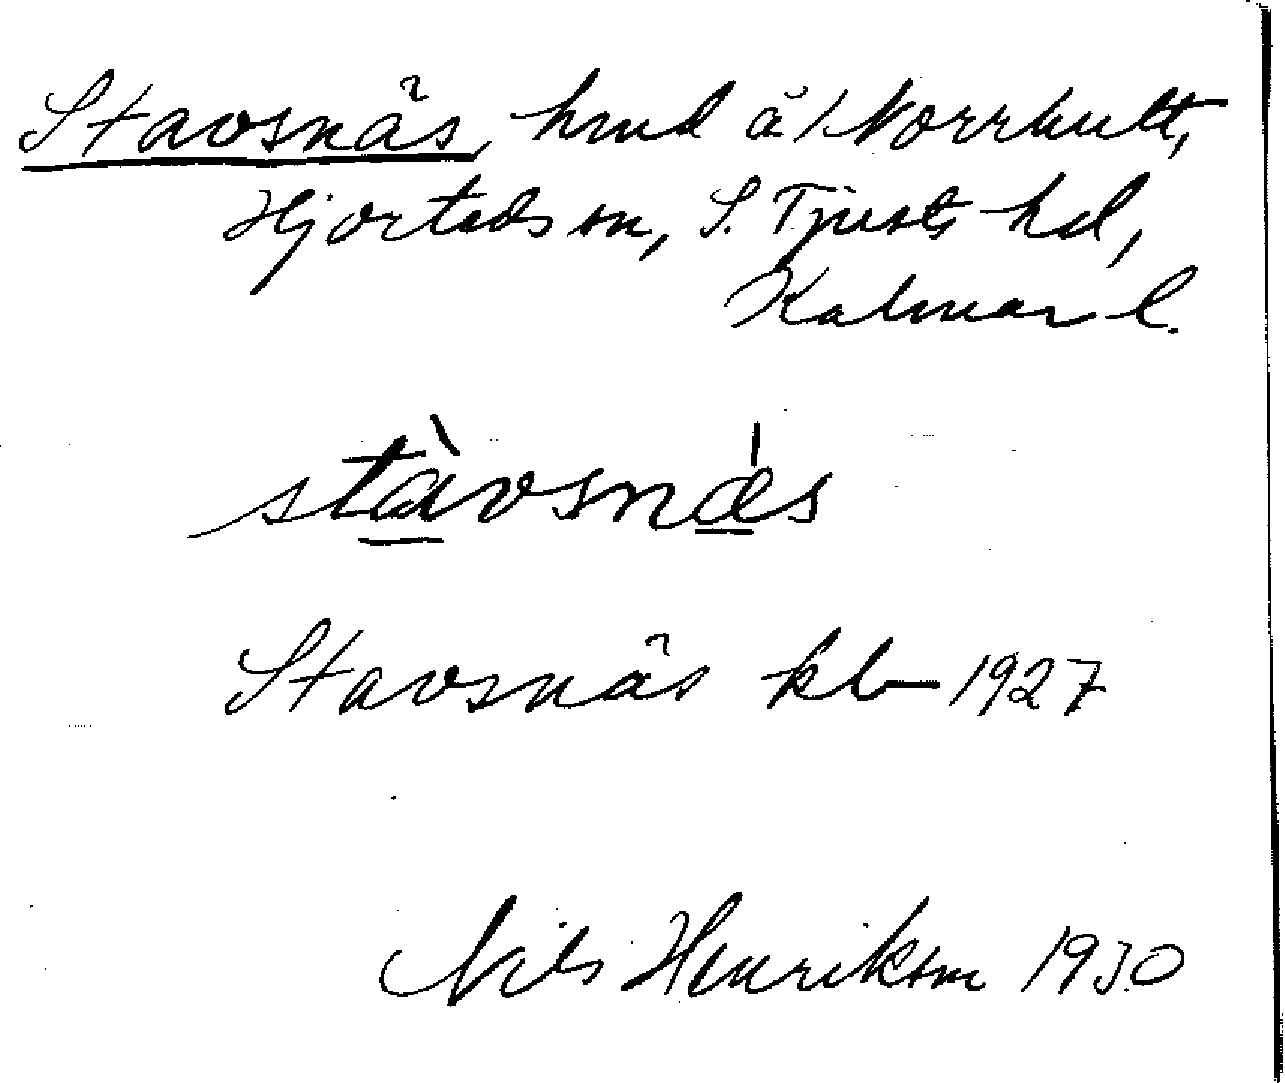 Stavsnäs, hmd å Norrhult,
Hjorteds sn, S. Tjusts hd,
Kalmar l.
stàvsnǽs
Stavsnäs kb 1927
Nils Henrikson 1930